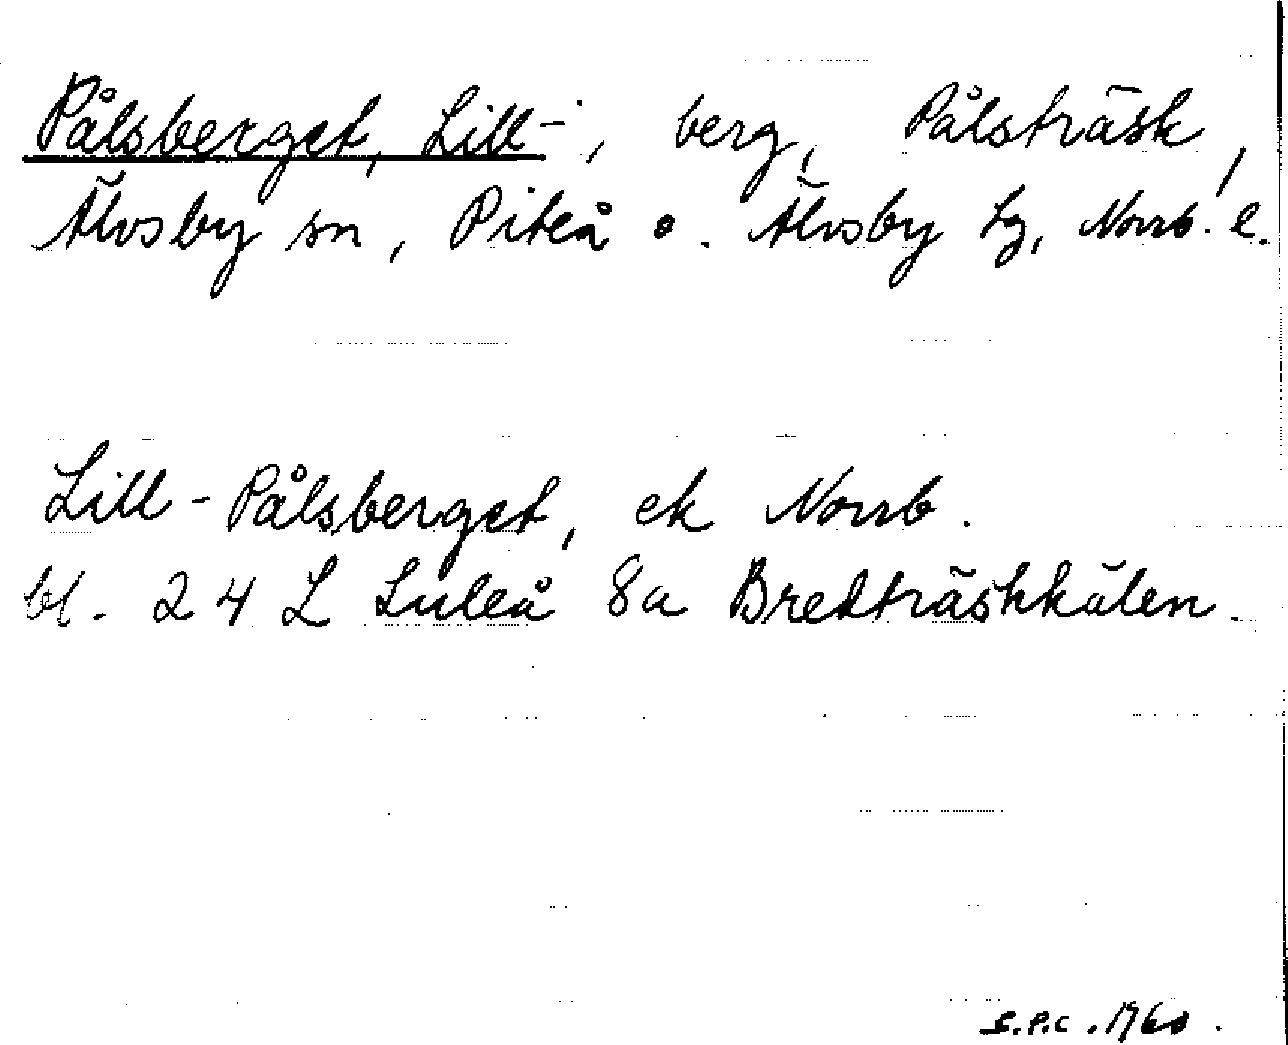 Pålsberget, Lill-, berg, Pålsträsk,
Älvsby sn, Piteå o. Älvsby tg, Norrb. l.
Lill-Pålsberget, ek Norrb.
bl. 24 L Luleå 8a Bredträskkälen.
S.P.C. 1960.